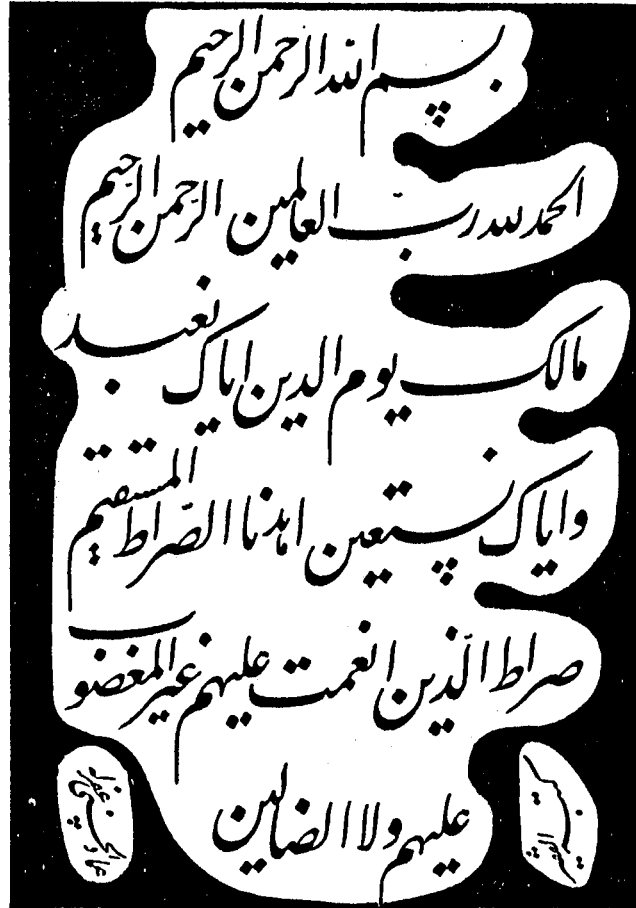 بسم الله الرحمن الرحيم
الحمد لله ربّ العالمين الرّحمن الرّحيم
مالک يوم الدين اياک نعبد
واياک نستعين اهدنا الصّراط المستقيم
صراط الّذين انعمت عليهم غير المغضوب
عليهم ولا الضالين